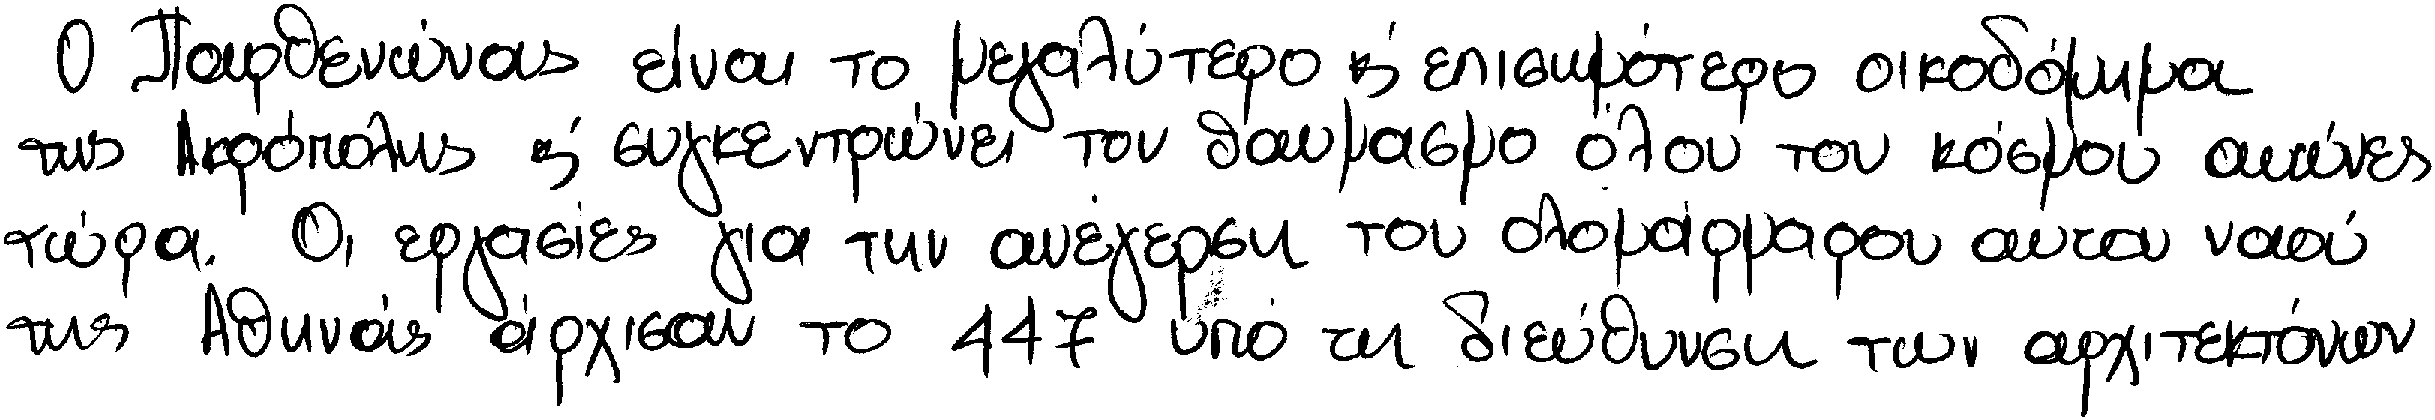 Ο Παρθενώνας είναι το μεγαλύτερο κ' επισημότερο οικοδόμημα
της Ακρόπολης κ' συγκεντρώνει τον θαυμασμο όλου του κόσμου αιώνες
τώρα. Οι εργασίες για την ανέγερση του ολομάρμαρου αυτου ναού
της Αθηνάς άρχισαν το 447 υπό τη διεύθυνση των αρχιτεκτόνων